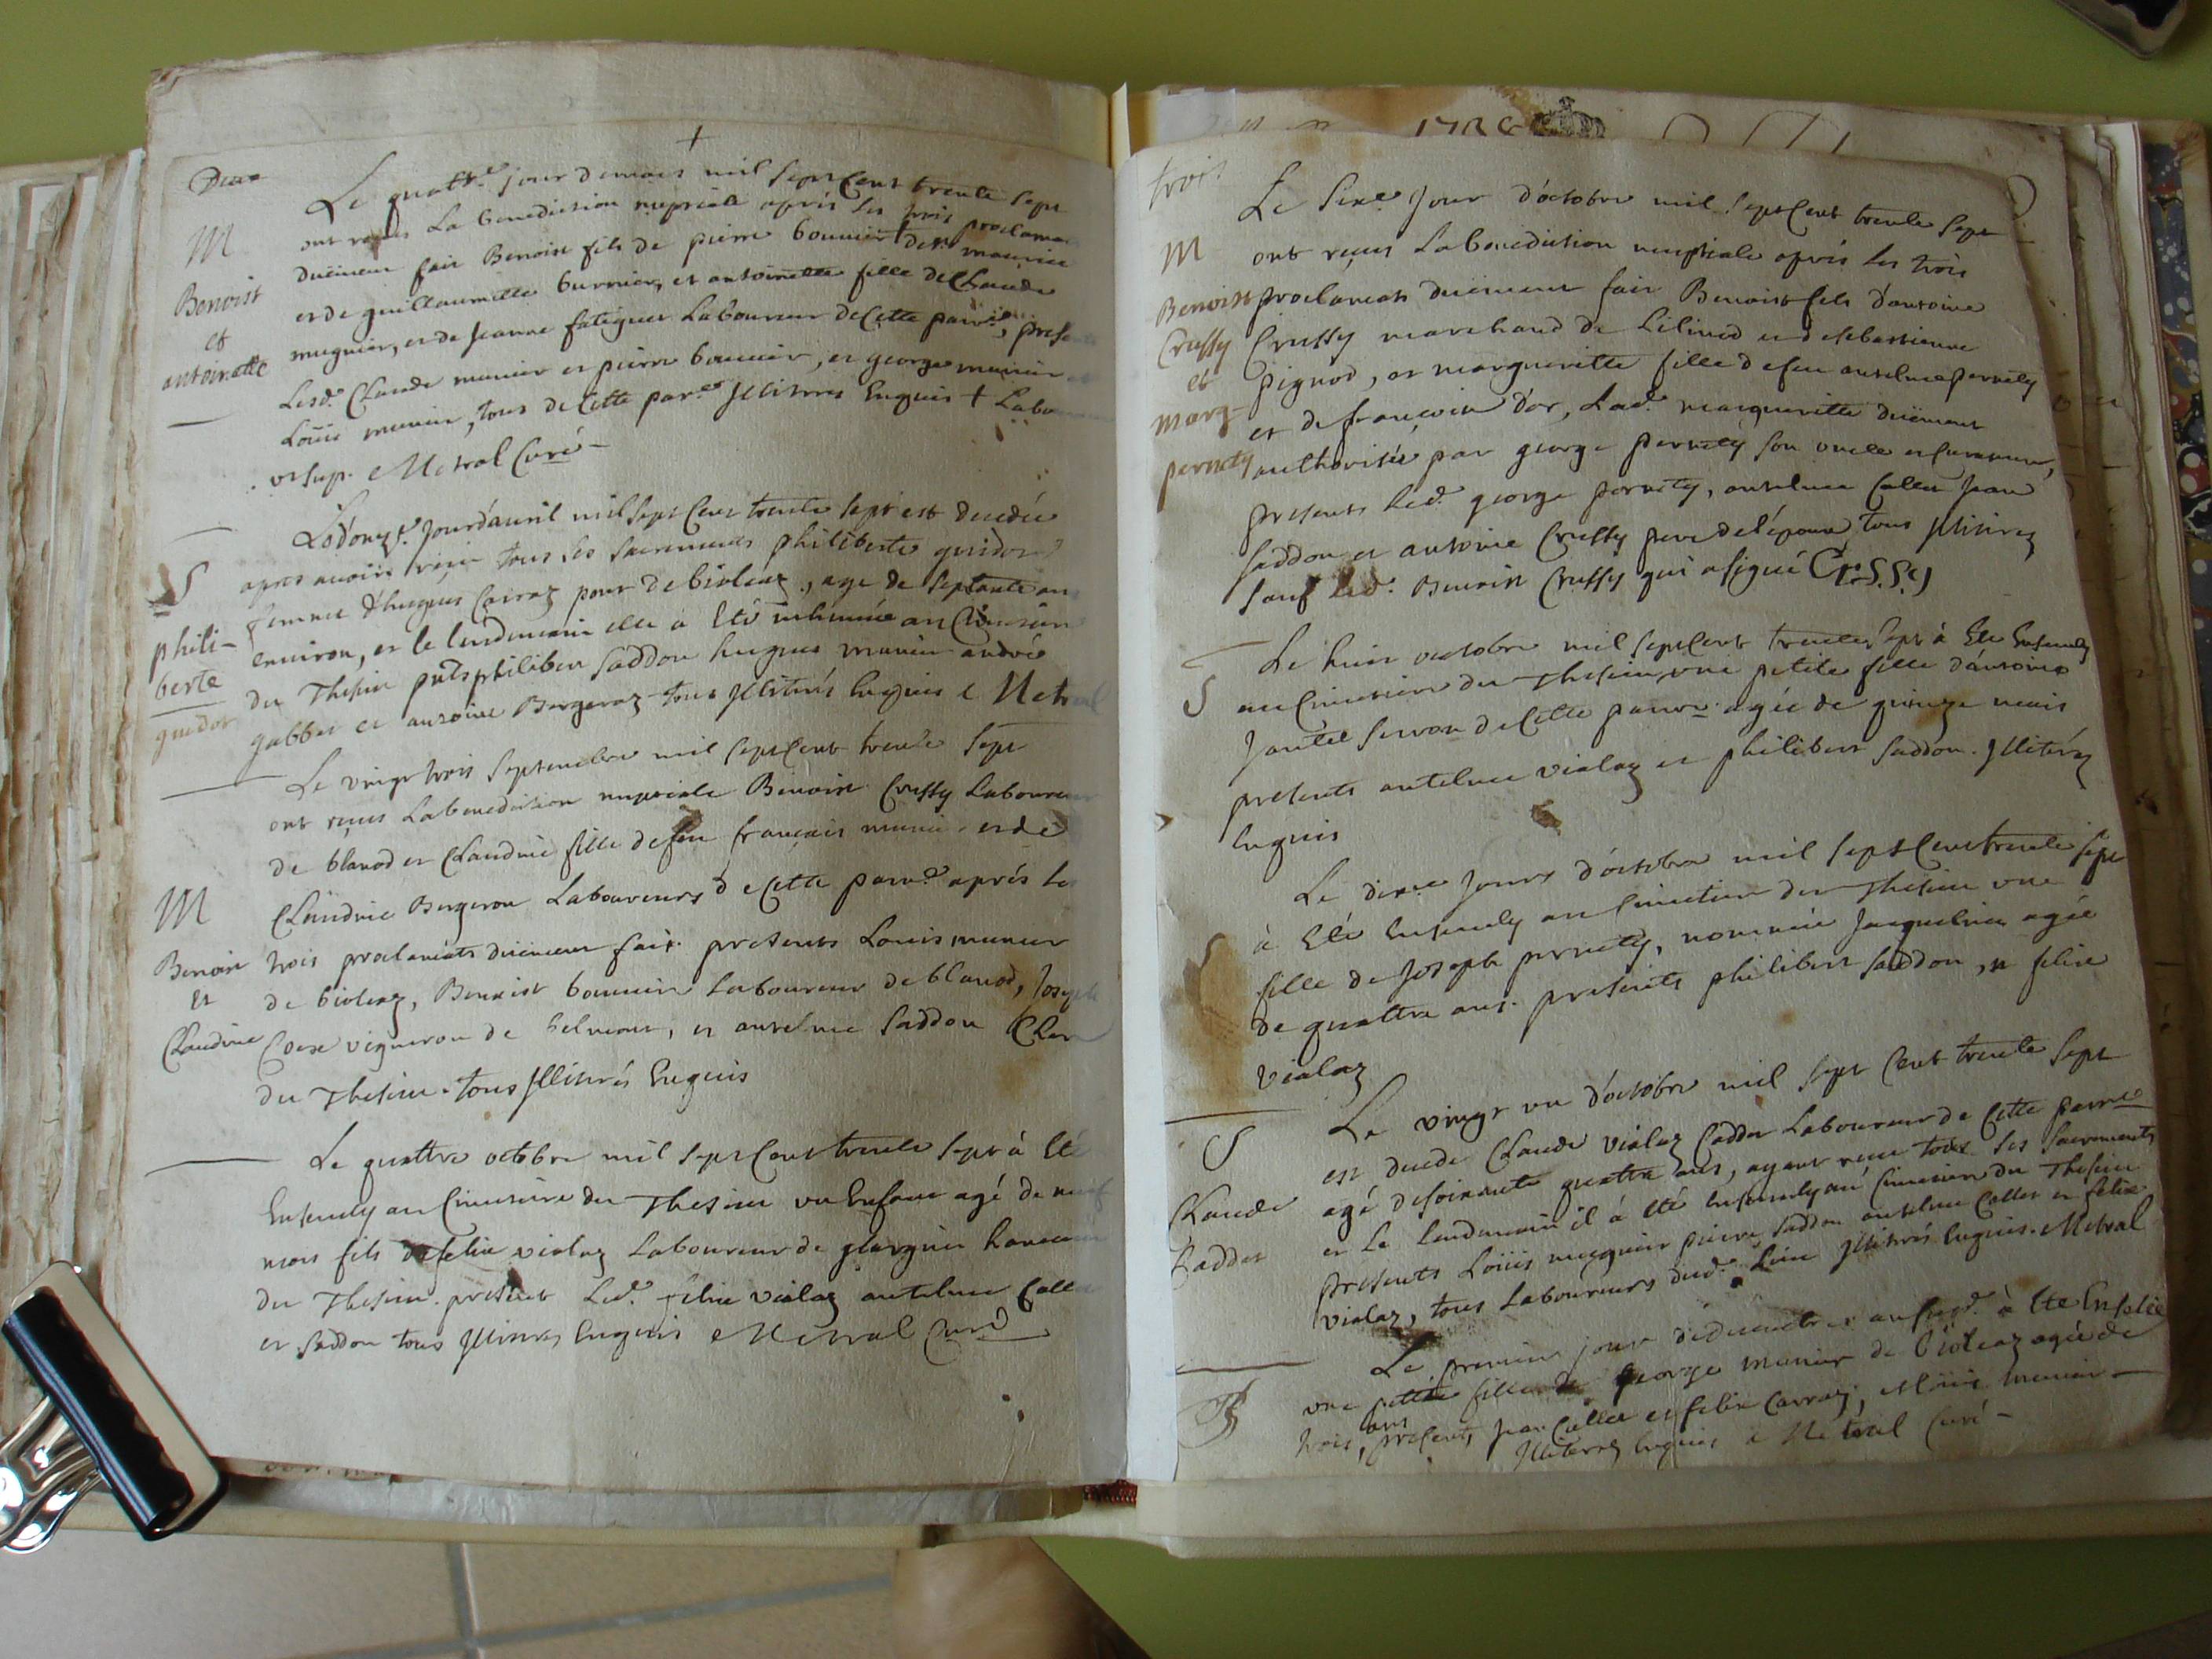 Deux
+
Le quattr.e jour de mars mil sept Cent trente sept
M
ont reçus La benediction nuptiale après les trois proclama
duëment fait Benoist fils de pierre bounier
Benoist
et de guillaumette burnier, et antoinette fille de Claude
et
mugnier, et de Jeanne Laboureur de Cette parr.e, prese
antoinette
Lesd. Claude munier et pierre bounier, et george munier
Loüis munier, tous de Cette par.e Illitires Enquis + Labo
et sup. Metral Curé
L'onz.e Jour d'auril mil sept Cent trente sept est decedée
S
apres auoir reçu tous ses sacrements philiberte guidor
femme d'hugues Carraz pour de bioleaz, age de septante an
phili-
berte
guedor
enuiron, et le lendemain elle a Eté inhumée au Cimetier
du Thesin pnts philibert saddou hugues munier andré
gabbet et antoine Bergeraz tous Illitirés Enquis Metral
Le vingt trois septembre mil sept Cent trente sept
ont reçus La benediction nuptiale Benoist Crussy Laboureur
de blanod et Claudine fille de feu français munie et de
M
Claudine Bergeron Laboureurs de Cette parr.e après les
Benoist
trois proclamats duëment fait. presents Louis munier
et
de bioleaz, Benoist bounier Laboureur de blanod, Joseph
Claudine
vigneron de belmont, et antelme saddou
du Thesin. tous Illitirés Enquis
Le quattre octobre mil sept Cent trente sept à Eté
Enseuely au Cimetiere du Thesin un Enfant agé de neuf
mois fils de felix vialaz Laboureur de
du Thesin. present Led. felix vialaz antelme Collet
et saddou tous Illitirés Enquis Metral Curé
1738
trois
Le sixe Jour d'octobre mil sept Cent trente sept
M
ont reçus La benediction nuptiale après les trois
Benoist
proclamats duëment fait Benoist fils d'antoine
Crussy
Crussy marchand de Lilinod et de sebastienne
et
pignod, et margueritte fille de feu antelme pernety
marg-
et de francoise d'or, Lad. margueritte duëment
pernety
authorisée par george pernety son oncle et curateur,
presents Led. george pernety, antelme Collet Jean
saddou et antoine Crussy pere de l'époux tous Illitirez
sauf Led. Benoist Crussy qui a signé Crussy
Le huit octobre mil sept Cent trente sept à Ete Enseuely
S
au Cimetiere du Thesin, une petite fille d'antoine
Jantet seruon de Cette parre. agée de quinze mois
presents antelme vialaz et philibert saddou. Illitirez
Enquis
Le dixe Jours d'octobre mil sept Cent trente sept
à Eté Enseuely au Cimetiere du Thesin une
fille de Joseph pernety, nommée Jacqueline agée
de quattre ans. presents philibert saddou, et felix
vialaz
Le vingt un d'octobre mil sept Cent trente sept
S
est decede Claude vialaz Caddet Laboureur de Cette parre
Claude
agé de soixante quattre ans, ayant reçu tous ses sacrements
Caddet
et le lendemain il à eté Enseuely au Cimetiere du Thesin
presents Loüis mugnier pierre saddou antelme Collet et felix
vialaz, tous Laboureurs dud. Lieu Illitirés Enquis. Metral
Le premier jour de decembre an susd. à Ete Enselie
une petitte fille de George munier de bioleaz agée de
trois ans, presents Jean Collet et felix Carraz, et Loüis munier
Illiterez Enquis Metral Curé